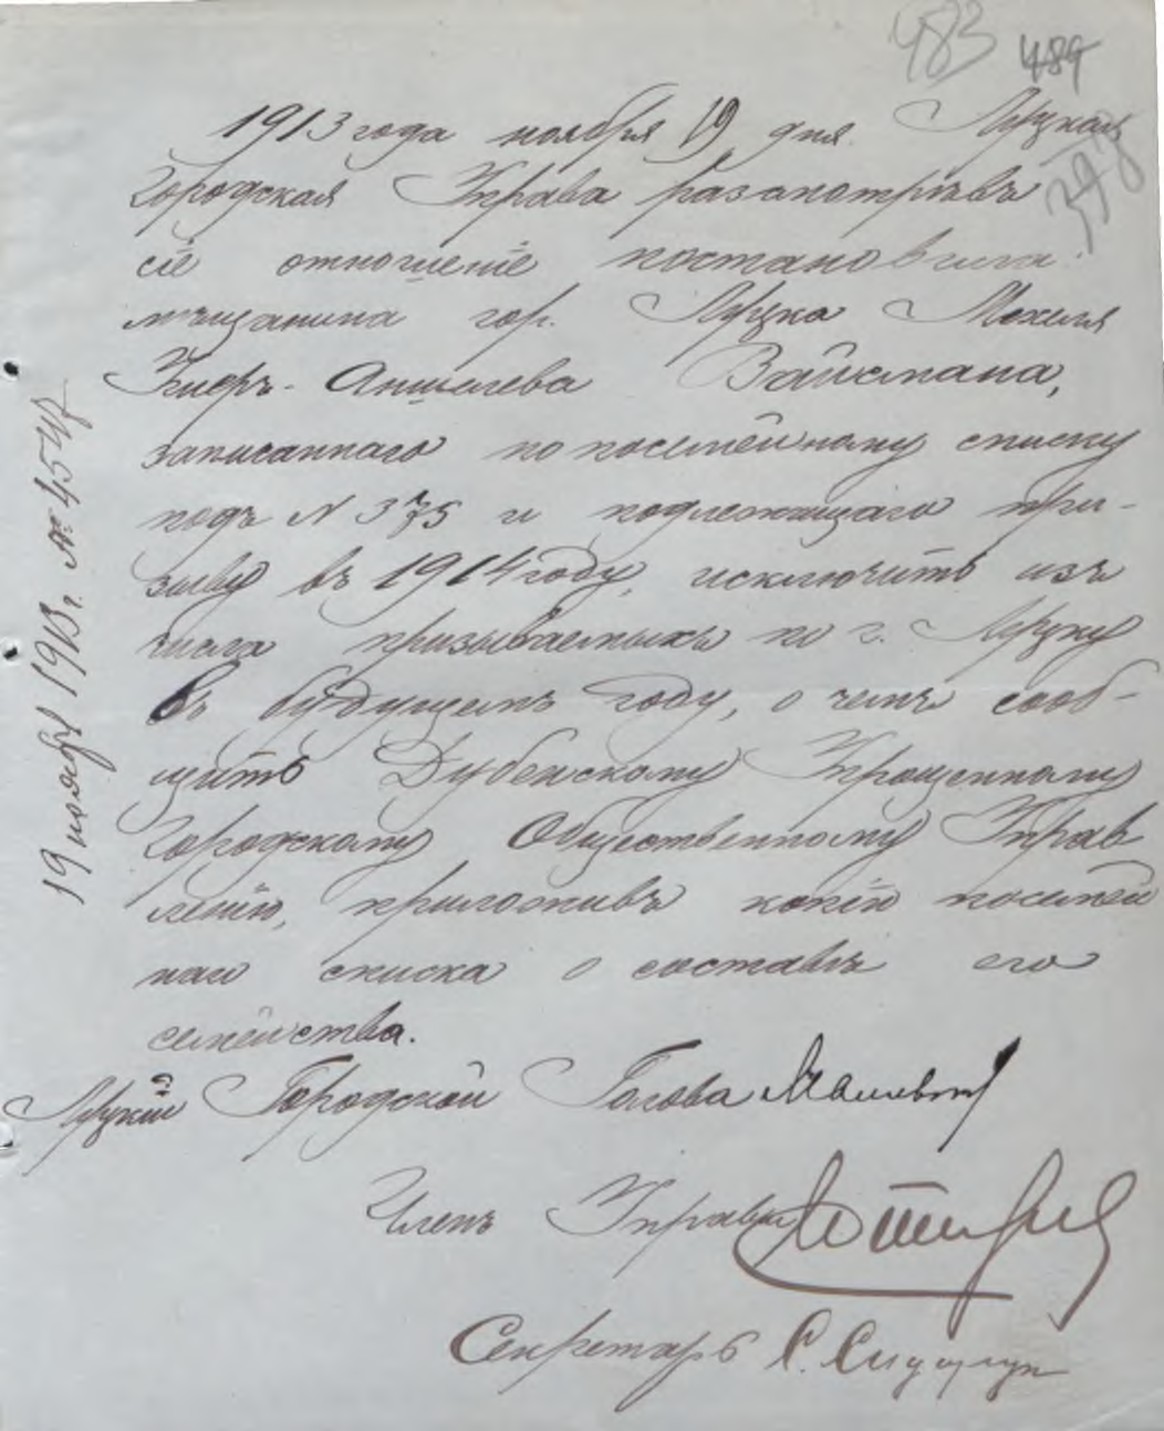 483 489
398
1913 года ноября 19 дня Луцкая
Городская Управа разсмотрѣвъ
сіе отношеніе постановила:
мѣщанина гор. Луцка Мехеля
Хиеръ-Аншелева Вайсмана,
записаннаго по посемейному списку
подъ N 375 и подлежащаго при-
зыву въ 1914 году, исключить изъ
числа призываемыхъ по г. Луцку
въ будущемъ году, о чемъ сооб-
щить Дубенскому Упрощенному
Городскому Общественному Управ
ленію, приложивъ копію посемей
наго списка о составѣ его
семейства.
Луцкій Городской Голова
Членъ Управы
Секретарь С.
19 ноября 1913 г. №